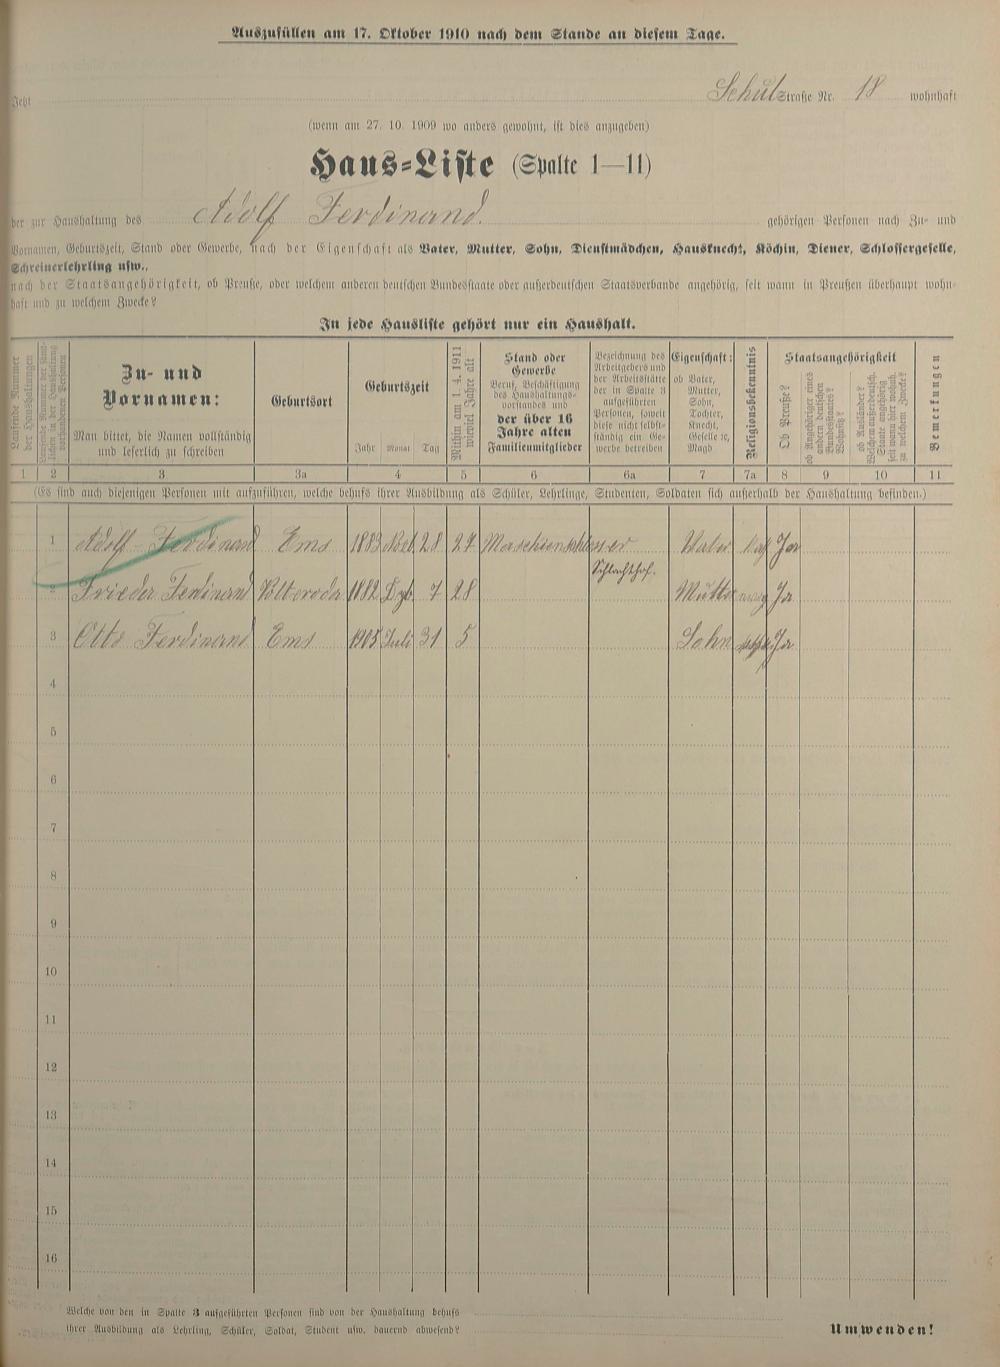 Auszufüllen am 17. Oktober 1910 nach dem Stande an diesem Tage.
Jetzt Schulstraße Nr. 18 wohnhaft
(wenn am 27. 10. 1909 wo anders gewohnt, ist dies anzugeben)
Haus-Liste (Spalte 1—11)
der zur Haushaltung des Adolf Ferdinand. gehörigen Personen nach Zu- und
Vornamen, Geburtszeit, Stand oder Gewerbe, nach der Eigenschaft als Vater, Mutter, Sohn, Dienstmädchen, Hausknecht, Köchin, Diener, Schlossergeselle,
Schreinerlehrling usw.,
nach der Staatsangehörigkeit, ob Preuße, oder welchem anderen deutschen Bundesstaate oder außerdeutschen Staatsverbande angehörig, seit wann in Preußen überhaupt wohn-
haft und zu welchem Zwecke?
In jede Hausliste gehört nur ein Haushalt.
Laufende Nummer der Haushaltungen
Zu- und Vornamen:
Man bittet, die Namen vollständig und leserlich zu schreiben
Geburtsort
Geburtszeit
Jahr Monat Tag
Mithin am 1. 4. 1911 wieviel Jahre alt
Stand oder Gewerbe
Beruf, Beschäftigung des Haushaltungsvorstandes und der über 16 Jahre alten Familienmitglieder
Bezeichnung des Arbeitgebers und der Arbeitsstätte der in Spalte 3 aufgeführten Personen, soweit diese nicht selbstständig ein Gewerbe betreiben
Eigenschaft:
ob Vater, Mutter, Sohn, Tochter, Knecht, Geselle ec, Magd
Religionsbekenntnis
Staatsangehörigkeit
Ob Preuße?
ob Angehöriger eines andern deutschen Bundesstaates?
ob Ausländer?
Bemerkungen
1 2 3 3a 4 5 6 6a 7 7a 8 9 10 11
(Es sind auch diejenigen Personen mit aufzuführen, welche behufs ihrer Ausbildung als Schüler, Lehrlinge, Studenten, Soldaten sich außerhalb der Haushaltung befinden.)
1 Adolf Ferdinand Ems 1883 28 27 Maschienschlosser Vater Kat Ja
Schlachthof.
2 Frieda Ferdinand 1882 Dzb 7 28 Mutter Ja
3 Otto Ferdinand Ems 1905 Juli 31 5 Sohn Ja
4
5
6
7
8
9
10
11
12
13
14
15
16
Welche von den in Spalte 3 aufgeführten Personen sind von der Haushaltung behufs
ihrer Ausbildung als Lehrling, Schüler, Soldat, Student usw. dauernd abwesend?
Umwenden!